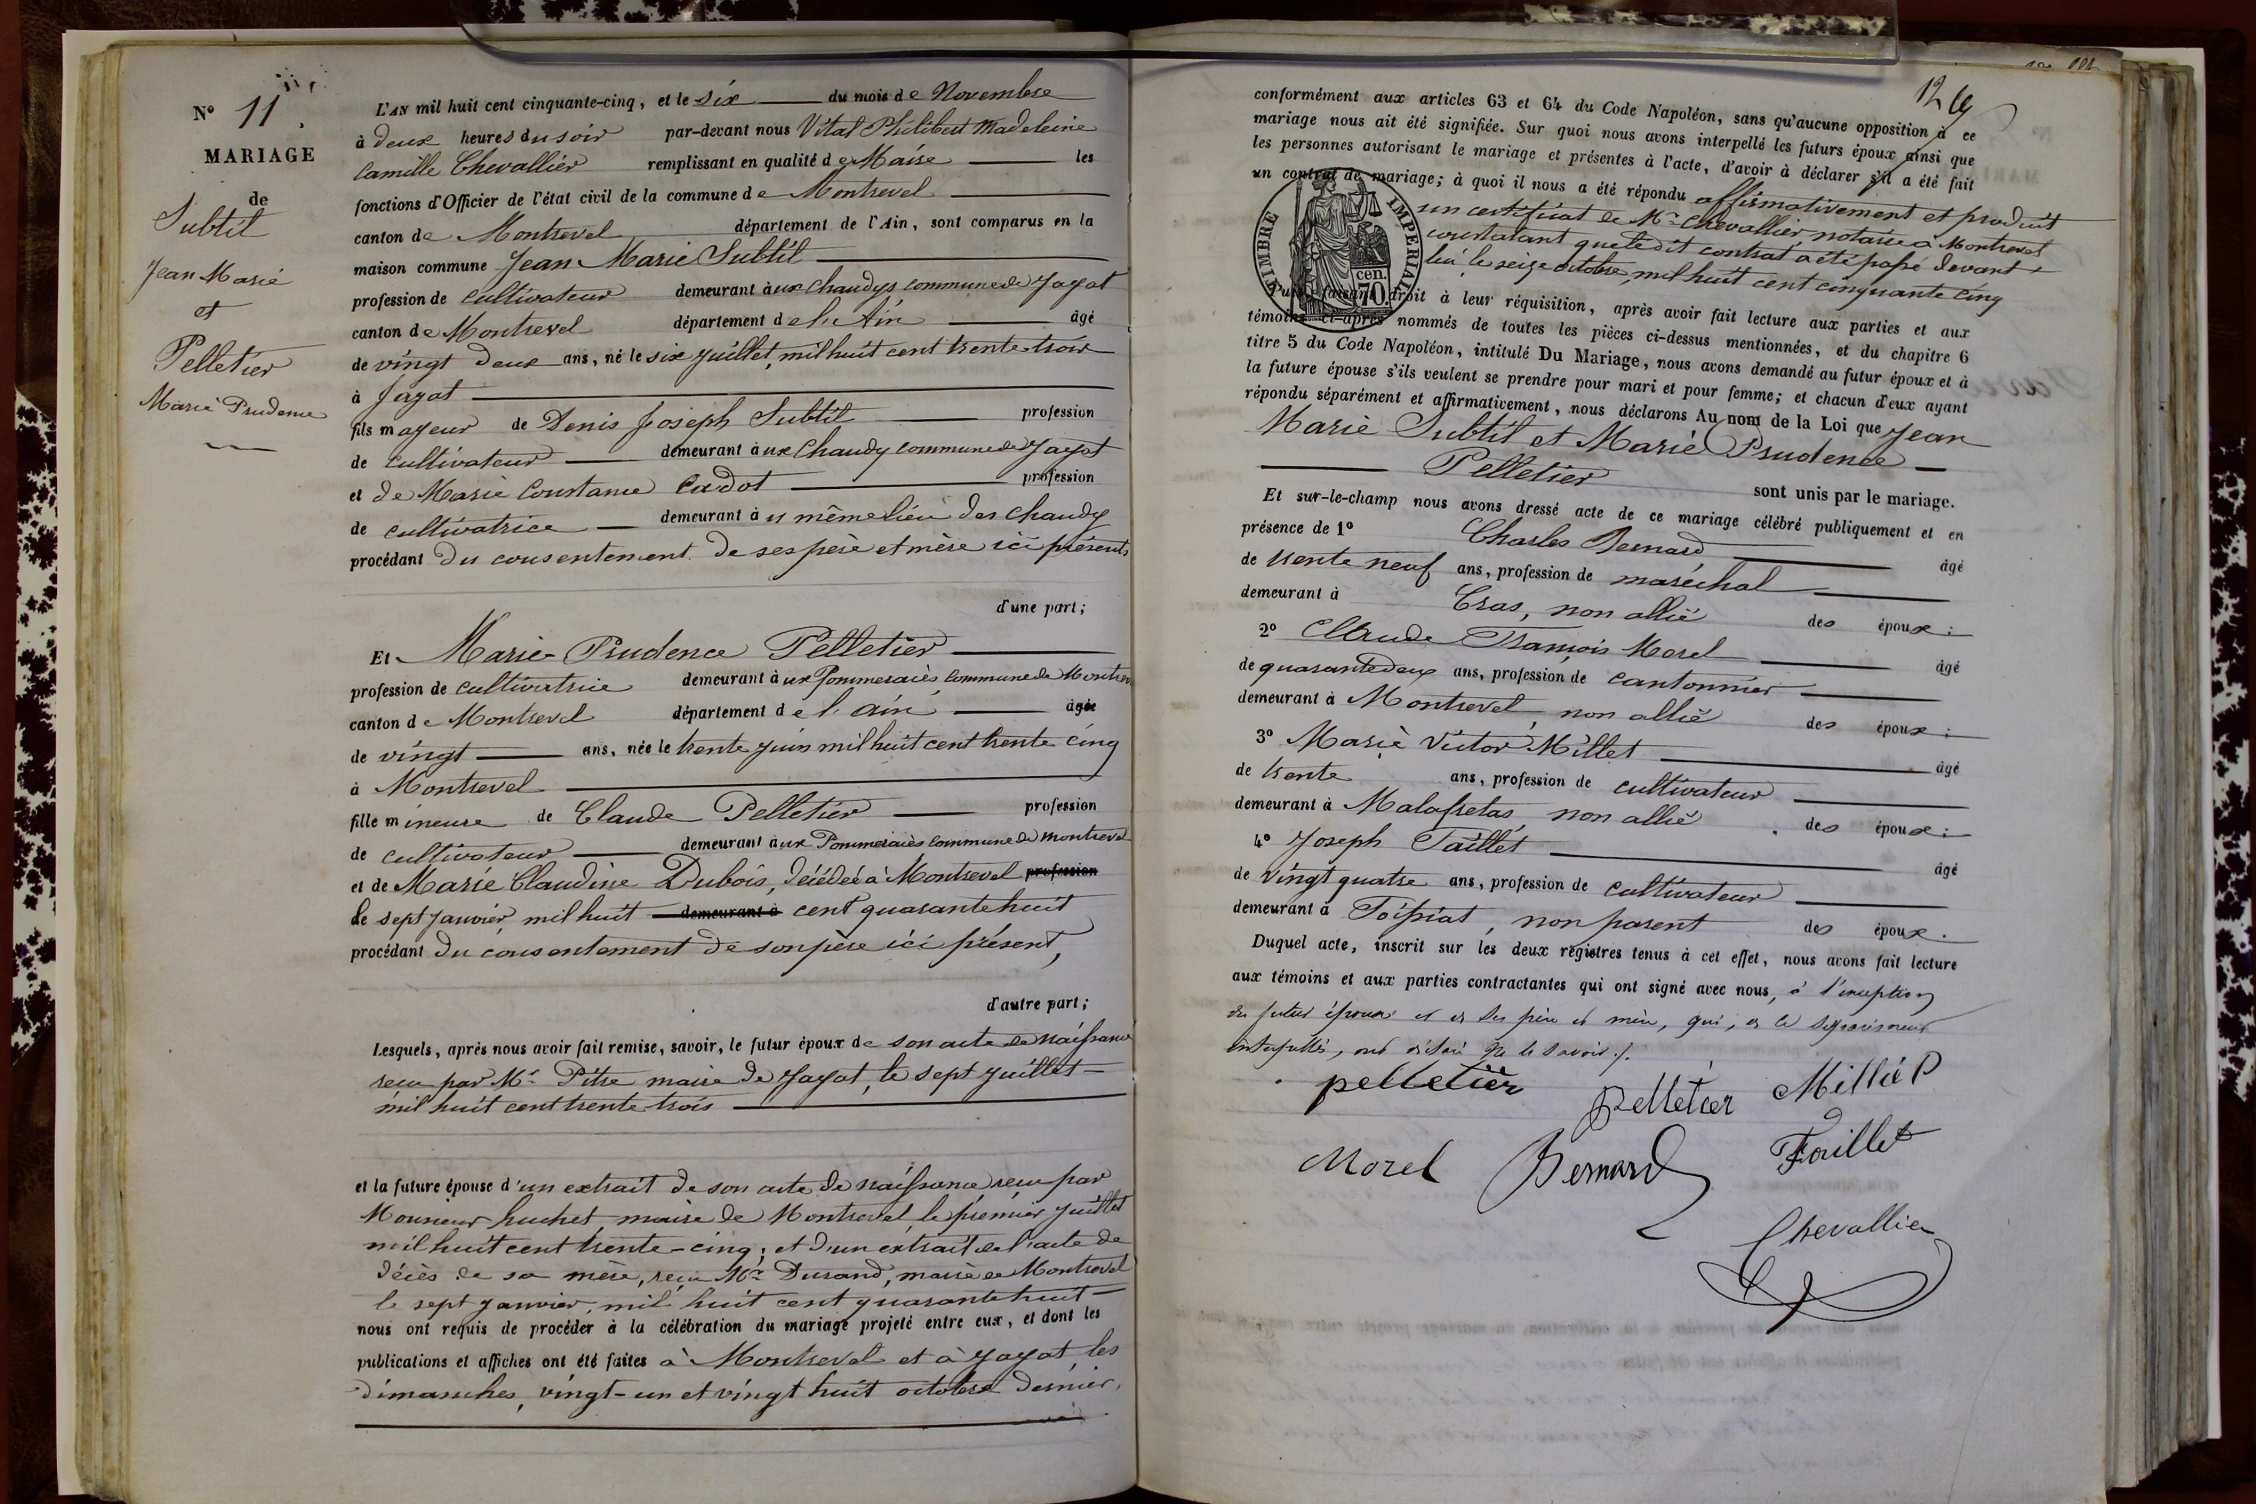 N° 11
MARIAGE
de
Subtil
Jean Marie
et
Pelletier
Marie Prudence
L'AN mil huit cent cinquante-cinq, et le six du mois de Novembre
à deux heures du soir par-devant nous Vital Philibert Madeleine
Camille Chevallier remplissant en qualité de Maire les
fonctions d'Officier de l'état civil de la commune de Montrevel
canton de Montrevel département de l'Ain, sont comparus en la
maison commune Jean Marie Subtil
profession de cultivateur demeurant aux Chaudys commune de Jayat
canton de Montrevel département de l'Ain âgé
de vingt deux ans, né le six juillet, mil huit cent trente-trois
à Jayat
fils mayeur de Denis Joseph Subtil profession
de cultivateur demeurant aux Chaudy commune de Jayat
et de Marie Constance Cadot profession
de cultivatrice demeurant au même lieu des Chaudy
procédant du consentement de ses père et mère ici présents
d'une part;
Et Marie Prudence Pelletier
profession de cultivatrice demeurant aux Pommeraies, commune de Montrevel
canton de Montrevel département de l'Ain âgée
de vingt ans, née le trente juin mil huit cent trente cinq
à Montrevel
fille mineure de Claude Pelletier profession
de cultivateur demeurant aux Pommeraies commune de Montrevel
et de Marie Claudine Dubois, décédée à Montrevel profession
le sept janvier, mil huit demeurant à cent quarante huit
procédant du consentement de son père ici présent,
d'autre part;
Lesquels, après nous avoir fait remise, savoir, le futur époux de son acte de naissance
reçu par Mr Pitre maire de Jayat, le sept juillet
mil huit cent trente trois
et la future épouse d'un extrait de son acte de naissance reçu par
Monsieur huchet, maire de Montrevel, le premier juillet
mil huit cent trente-cinq; et d'un extrait de l'acte de
décès de sa mère, reçu Mr Durand, maire de Montrevel
le sept janvier, mil huit cent quarante huit
nous ont requis de procéder à la célébration du mariage projeté entre eux, et dont les
publications et affiches ont été faites à Montrevel et à Jayat, les
dimanches, vingt-un et vingt huit octobre dernier,
conformément aux articles 63 et 64 du Code Napoléon, sans qu'aucune opposition à ce
mariage nous ait été signifiée. Sur quoi nous avons interpellé les futurs époux ainsi que
les personnes autorisant le mariage et présentes à l'acte, d'avoir à déclarer s'il a été fait
un contrat de mariage; à quoi il nous a été répondu affirmativement et produit
un certificat de Mr Chevallier notaire à Montrevel
constatant que le dit contrat a été passé devant
lui, le seize octobre, mil huit cent cinquante cinq
TIMBRE IMPERIAL
cen.
70.
faisant droit à leur réquisition, après avoir fait lecture aux parties et aux
témoins ci-après nommés de toutes les pièces ci-dessus mentionnées, et du chapitre 6
titre 5 du Code Napoléon, intitulé Du Mariage, nous avons demandé au futur époux et à
la future épouse s'ils veulent se prendre pour mari et pour femme; et chacun d'eux ayant
répondu séparément et affirmativement, nous déclarons Au nom de la Loi que Jean
Marie Subtil et Marie Prudence
Pelletier sont unis par le mariage.
Et sur-le-champ nous avons dressé acte de ce mariage célébré publiquement et en
présence de 1° Charles Bernard âgé
de trente neuf ans, profession de maréchal
demeurant à Cras, non allié des époux;
2° Claude François Morel âgé
de quarante deux ans, profession de cantonnier
demeurant à Montrevel, non allié des époux;
3° Marie Victor Millet âgé
de trente ans, profession de cultivateur
demeurant à Malafretaz non allié des époux;
4° Joseph Faillet âgé
de vingt quatre ans, profession de cultivateur
demeurant à Foissiat, non parent des époux.
Duquel acte, inscrit sur les deux registres tenus à cet effet, nous avons fait lecture
aux témoins et aux parties contractantes qui ont signé avec nous, à l'exception
du futur époux et de ses père et mère, qui, de le
interpellés, ont déclaré ne le savoir./.
pelletier
Pelletier
Morel
Bernard
Faillet
Chevallier